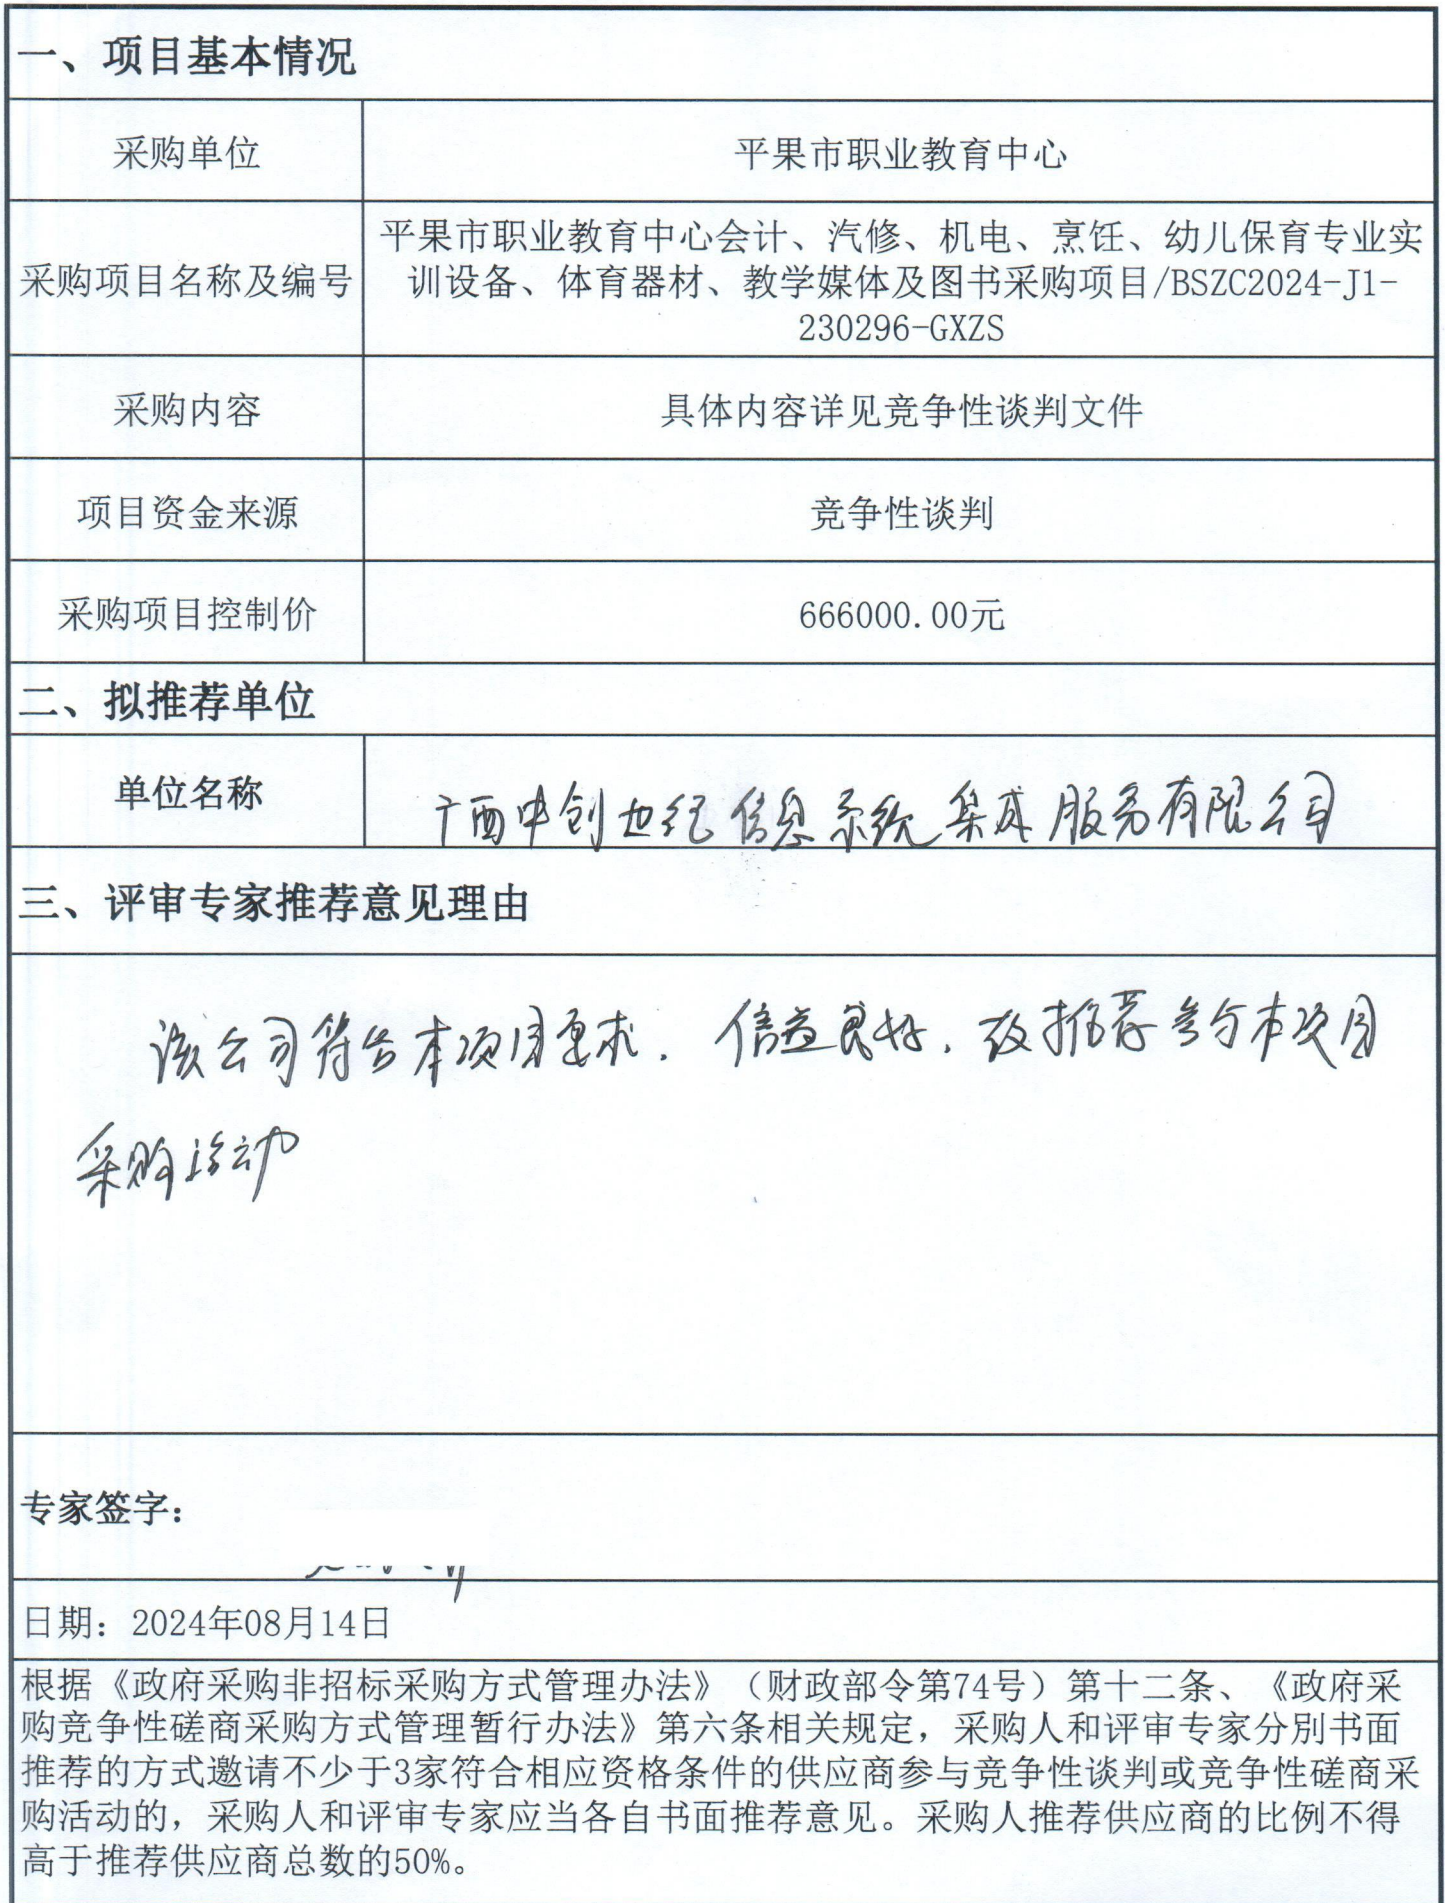 一、项目基本情况
采购单位
平果市职业教育中心
采购项目名称及编号
平果市职业教育中心会计、汽修、机电、烹饪、幼儿保育专业实
训设备、体育器材、教学媒体及图书采购项目/BSZC2024-J1-
230296-GXZS
采购内容
具体内容详见竞争性谈判文件
项目资金来源
竞争性谈判
采购项目控制价
666000.00元
二、拟推荐单位
单位名称
广西中创世纪信息系统集成服务有限公司
三、评审专家推荐意见理由
该公司符合本项目要求，信益良好，故推荐参与本项目
采购活动
专家签字：
日期：2024年08月14日
根据《政府采购非招标采购方式管理办法》（财政部令第74号）第十二条、《政府采
购竞争性磋商采购方式管理暂行办法》第六条相关规定，采购人和评审专家分别书面
推荐的方式邀请不少于3家符合相应资格条件的供应商参与竞争性谈判或竞争性磋商采
购活动的，采购人和评审专家应当各自书面推荐意见。采购人推荐供应商的比例不得
高于推荐供应商总数的50%。